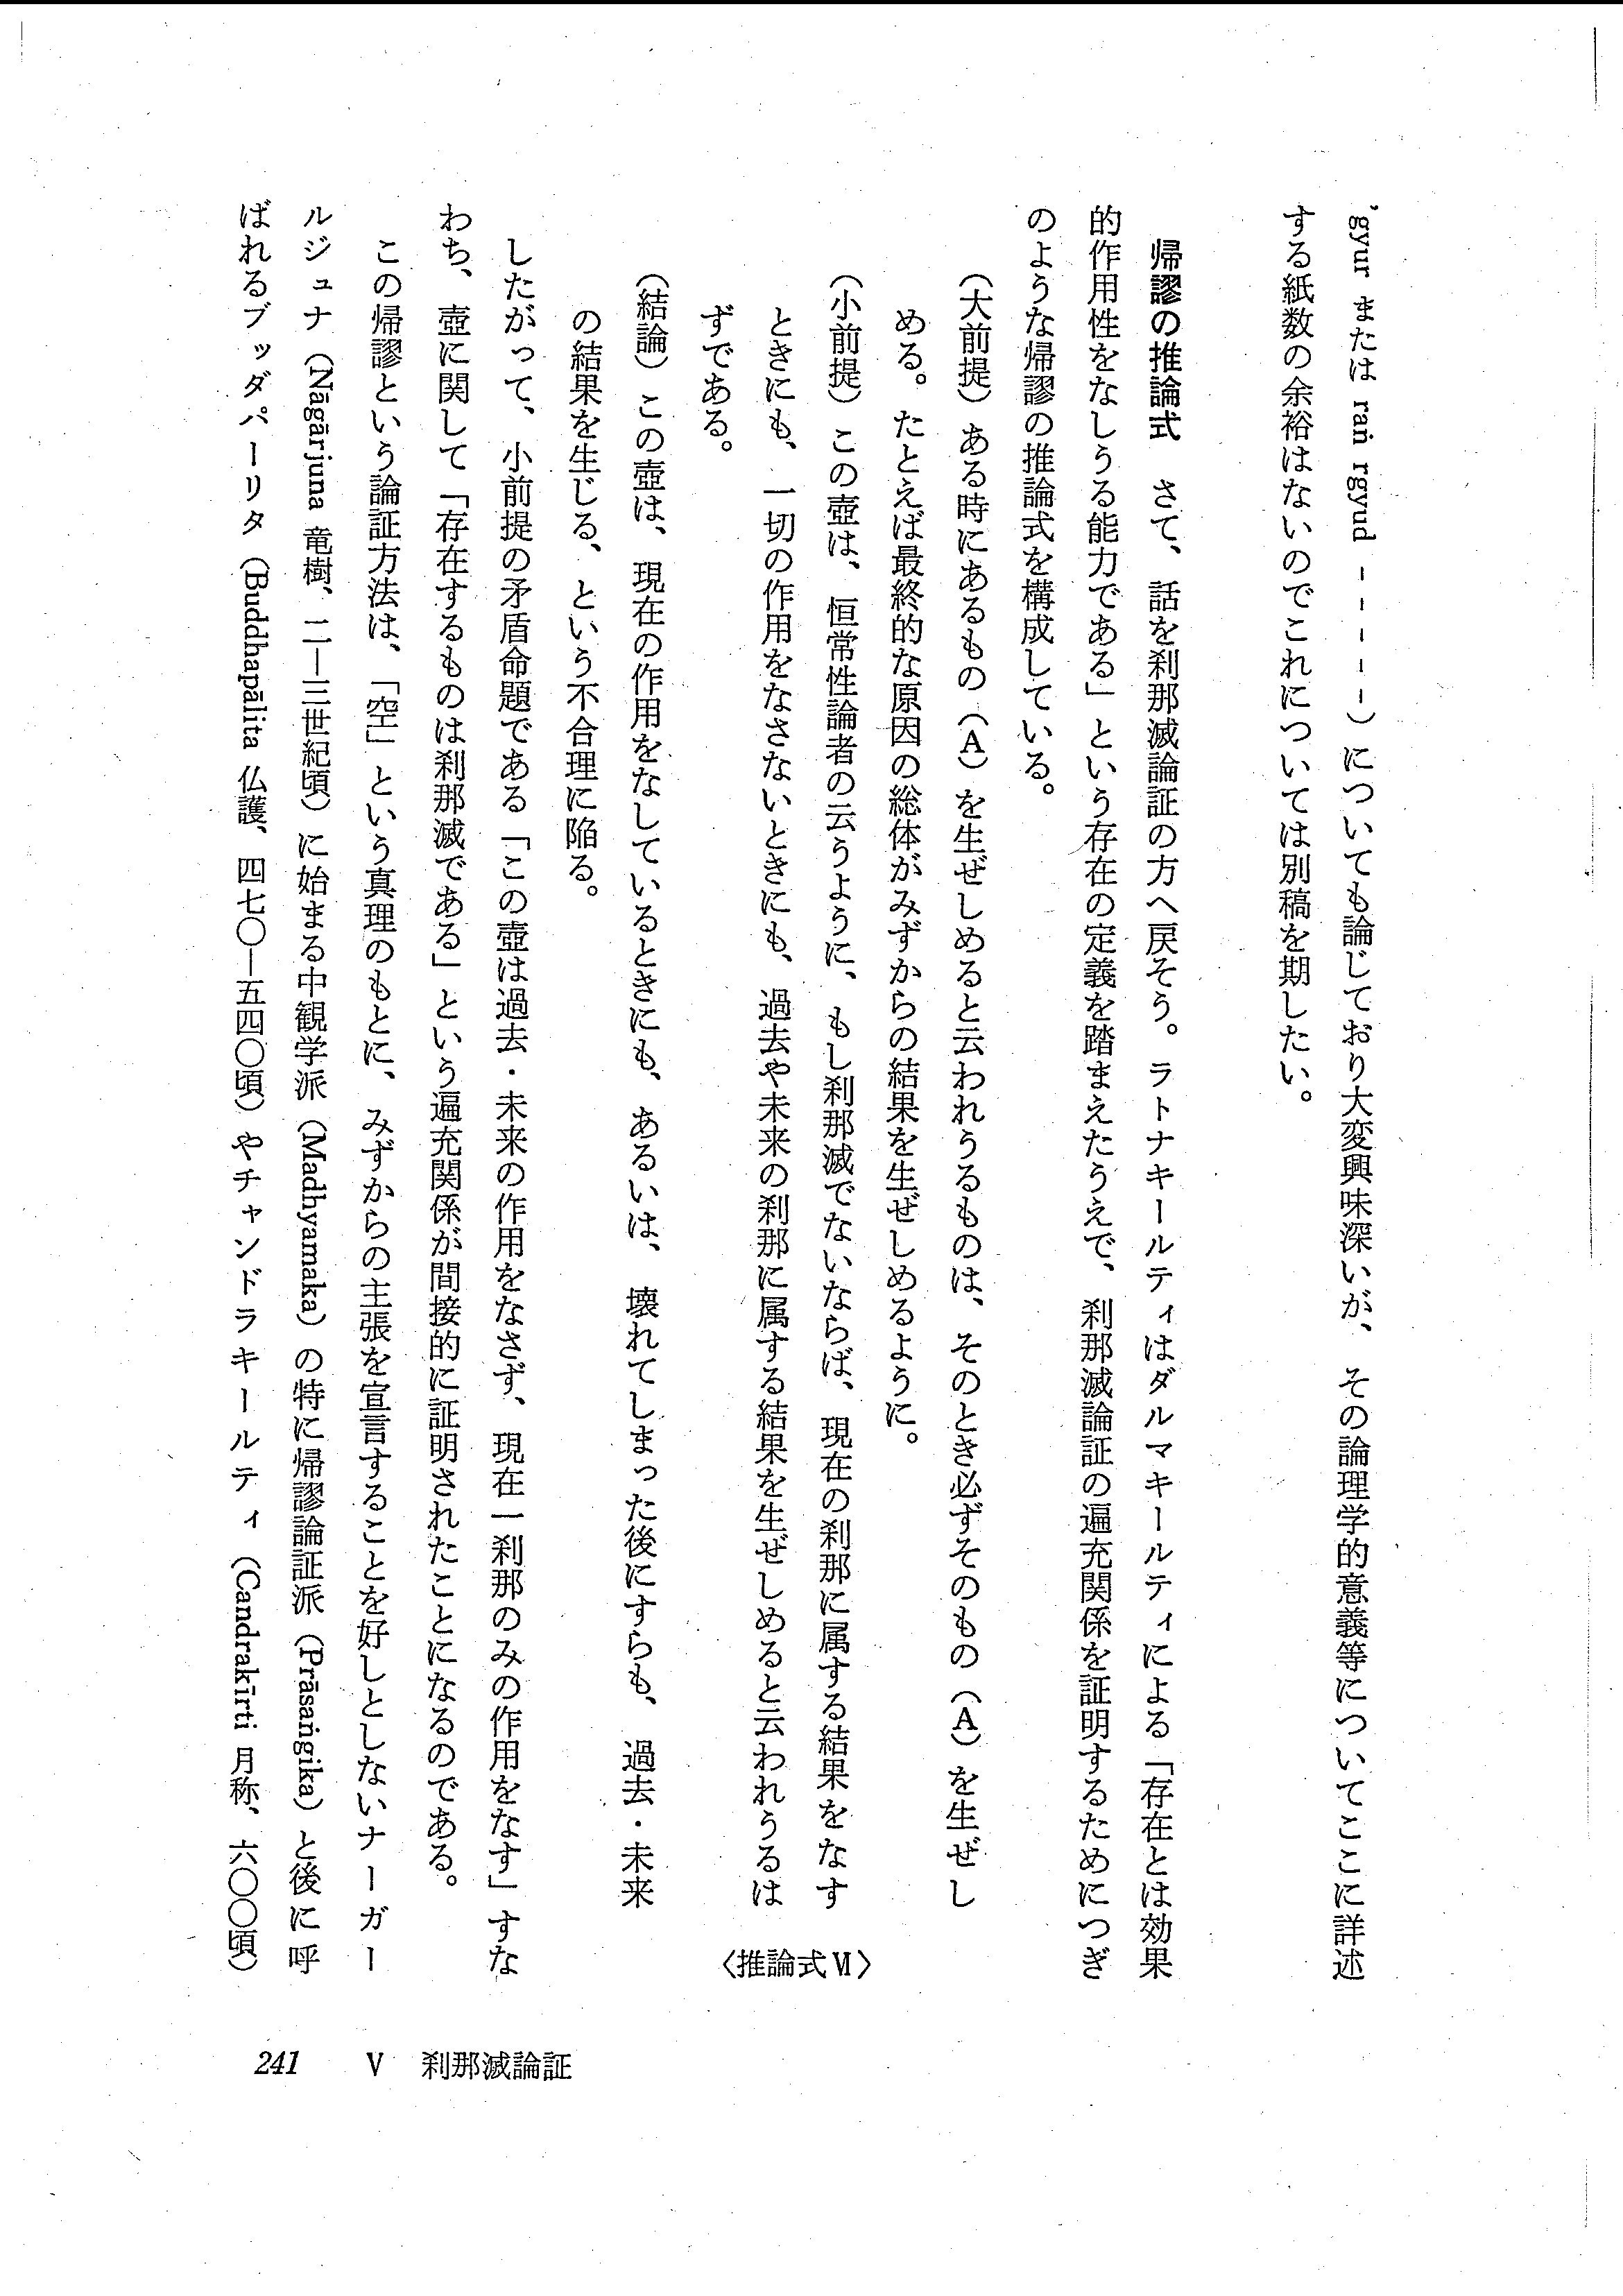 'gyur または raṅ rgyud -----）についても論じており大変興味深いが、その論理学的意義等についてここに詳述
する紙数の余裕はないのでこれについては別稿を期したい。
帰謬の推論式　さて、話を刹那滅論証の方へ戻そう。ラトナキールティはダルマキールティによる「存在とは効果
的作用性をなしうる能力である」という存在の定義を踏まえたうえで、刹那滅論証の遍充関係を証明するためにつぎ
のような帰謬の推論式を構成している。
（大前提）ある時にあるもの（A）を生ぜしめると云われうるものは、そのとき必ずそのもの（A）を生ぜし
める。たとえば最終的な原因の総体がみずからの結果を生ぜしめるように。
（小前提）この壺は、恒常性論者の云うように、もし刹那滅でないならば、現在の刹那に属する結果をなす
ときにも、一切の作用をなさないときにも、過去や未来の刹那に属する結果を生ぜしめると云われうるは
ずである。
〈推論式Ⅵ〉
（結論）この壺は、現在の作用をなしているときにも、あるいは、壊れてしまった後にすらも、過去・未来
の結果を生じる、という不合理に陥る。
したがって、小前提の矛盾命題である「この壺は過去・未来の作用をなさず、現在一刹那のみの作用をなす」すな
わち、壺に関して「存在するものは刹那滅である」という遍充関係が間接的に証明されたことになるのである。
この帰謬という論証方法は、「空」という真理のもとに、みずからの主張を宣言することを好しとしないナーガー
ルジュナ（Nāgārjuna 竜樹、二―三世紀頃）に始まる中観学派（Madhyamaka）の特に帰謬論証派（Prāsaṅgika）と後に呼
ばれるブッダパーリタ（Buddhapālita 仏護、四七〇―五四〇頃）やチャンドラキールティ（Candrakīrti 月称、六〇〇頃）
241　Ⅴ　刹那滅論証